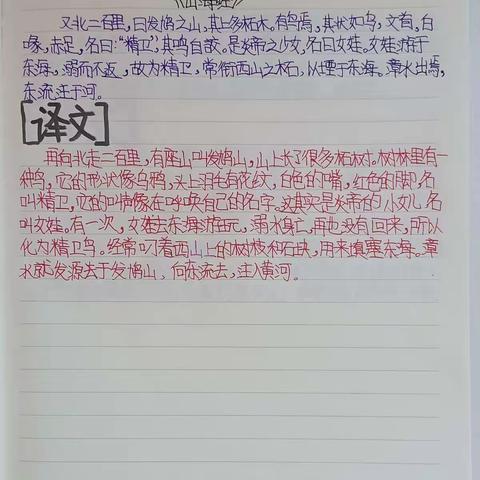 《山海经》
又北二百里,曰发鸠之山,其上多柘木。有鸟焉,其状如乌,文首,白
喙,赤足,名曰:“精卫”,其鸣自詨。是炎帝之少女,名曰女娃。女娃游于
东海,溺而不返,故为精卫,常衔西山之木石,以堙于东海。漳水出焉,
东流注于河。
[译文]
再向北走二百里,有座山叫发鸠山,山上长了很多柘树。树林里有一
种鸟,它的形状像乌鸦,头上羽毛有花纹,白色的嘴,红色的脚,名
叫精卫,它的叫声像在呼唤自己的名字。这其实是炎帝的小女儿,名
叫女娃。有一次,女娃去东海游玩,溺水身亡,再也没有回来,所以
化为精卫鸟。经常叼着西山上的树枝和石块,用来填塞东海。漳
水就发源于发鸠山,向东流去,注入黄河。